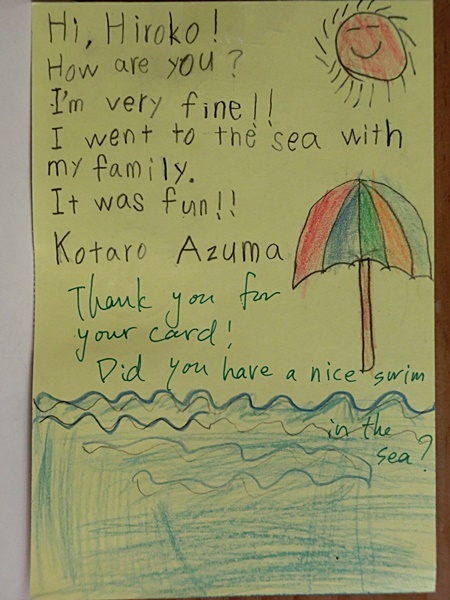 Hi, Hiroko!
How are you?
I'm very fine!!
I went to the sea with
my family.
It was fun!!
Kotaro Azuma
Thank you for
your card!
Did you have a nice swim
in the
sea?